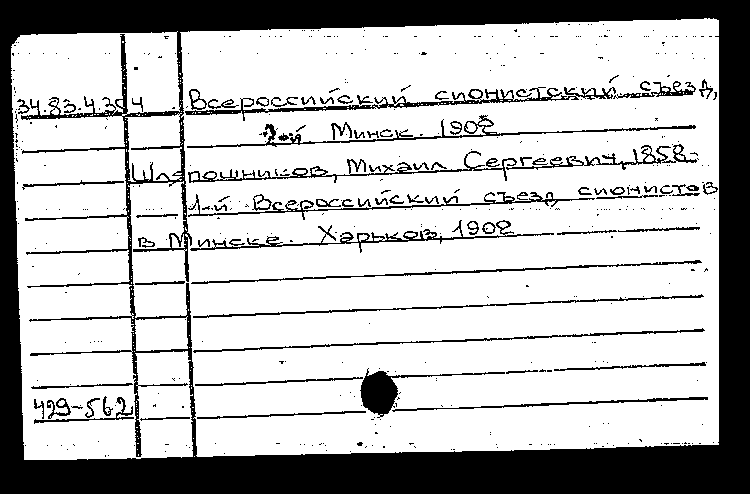 34.83.4.394 Всероссийский сионистский съезд,
2-ой Минск. 1902
Шляпошников, Михаил Сергеевич, 1858-
1-й Всероссийский съезд сионистов
в Минске. Харьков, 1902
429-562